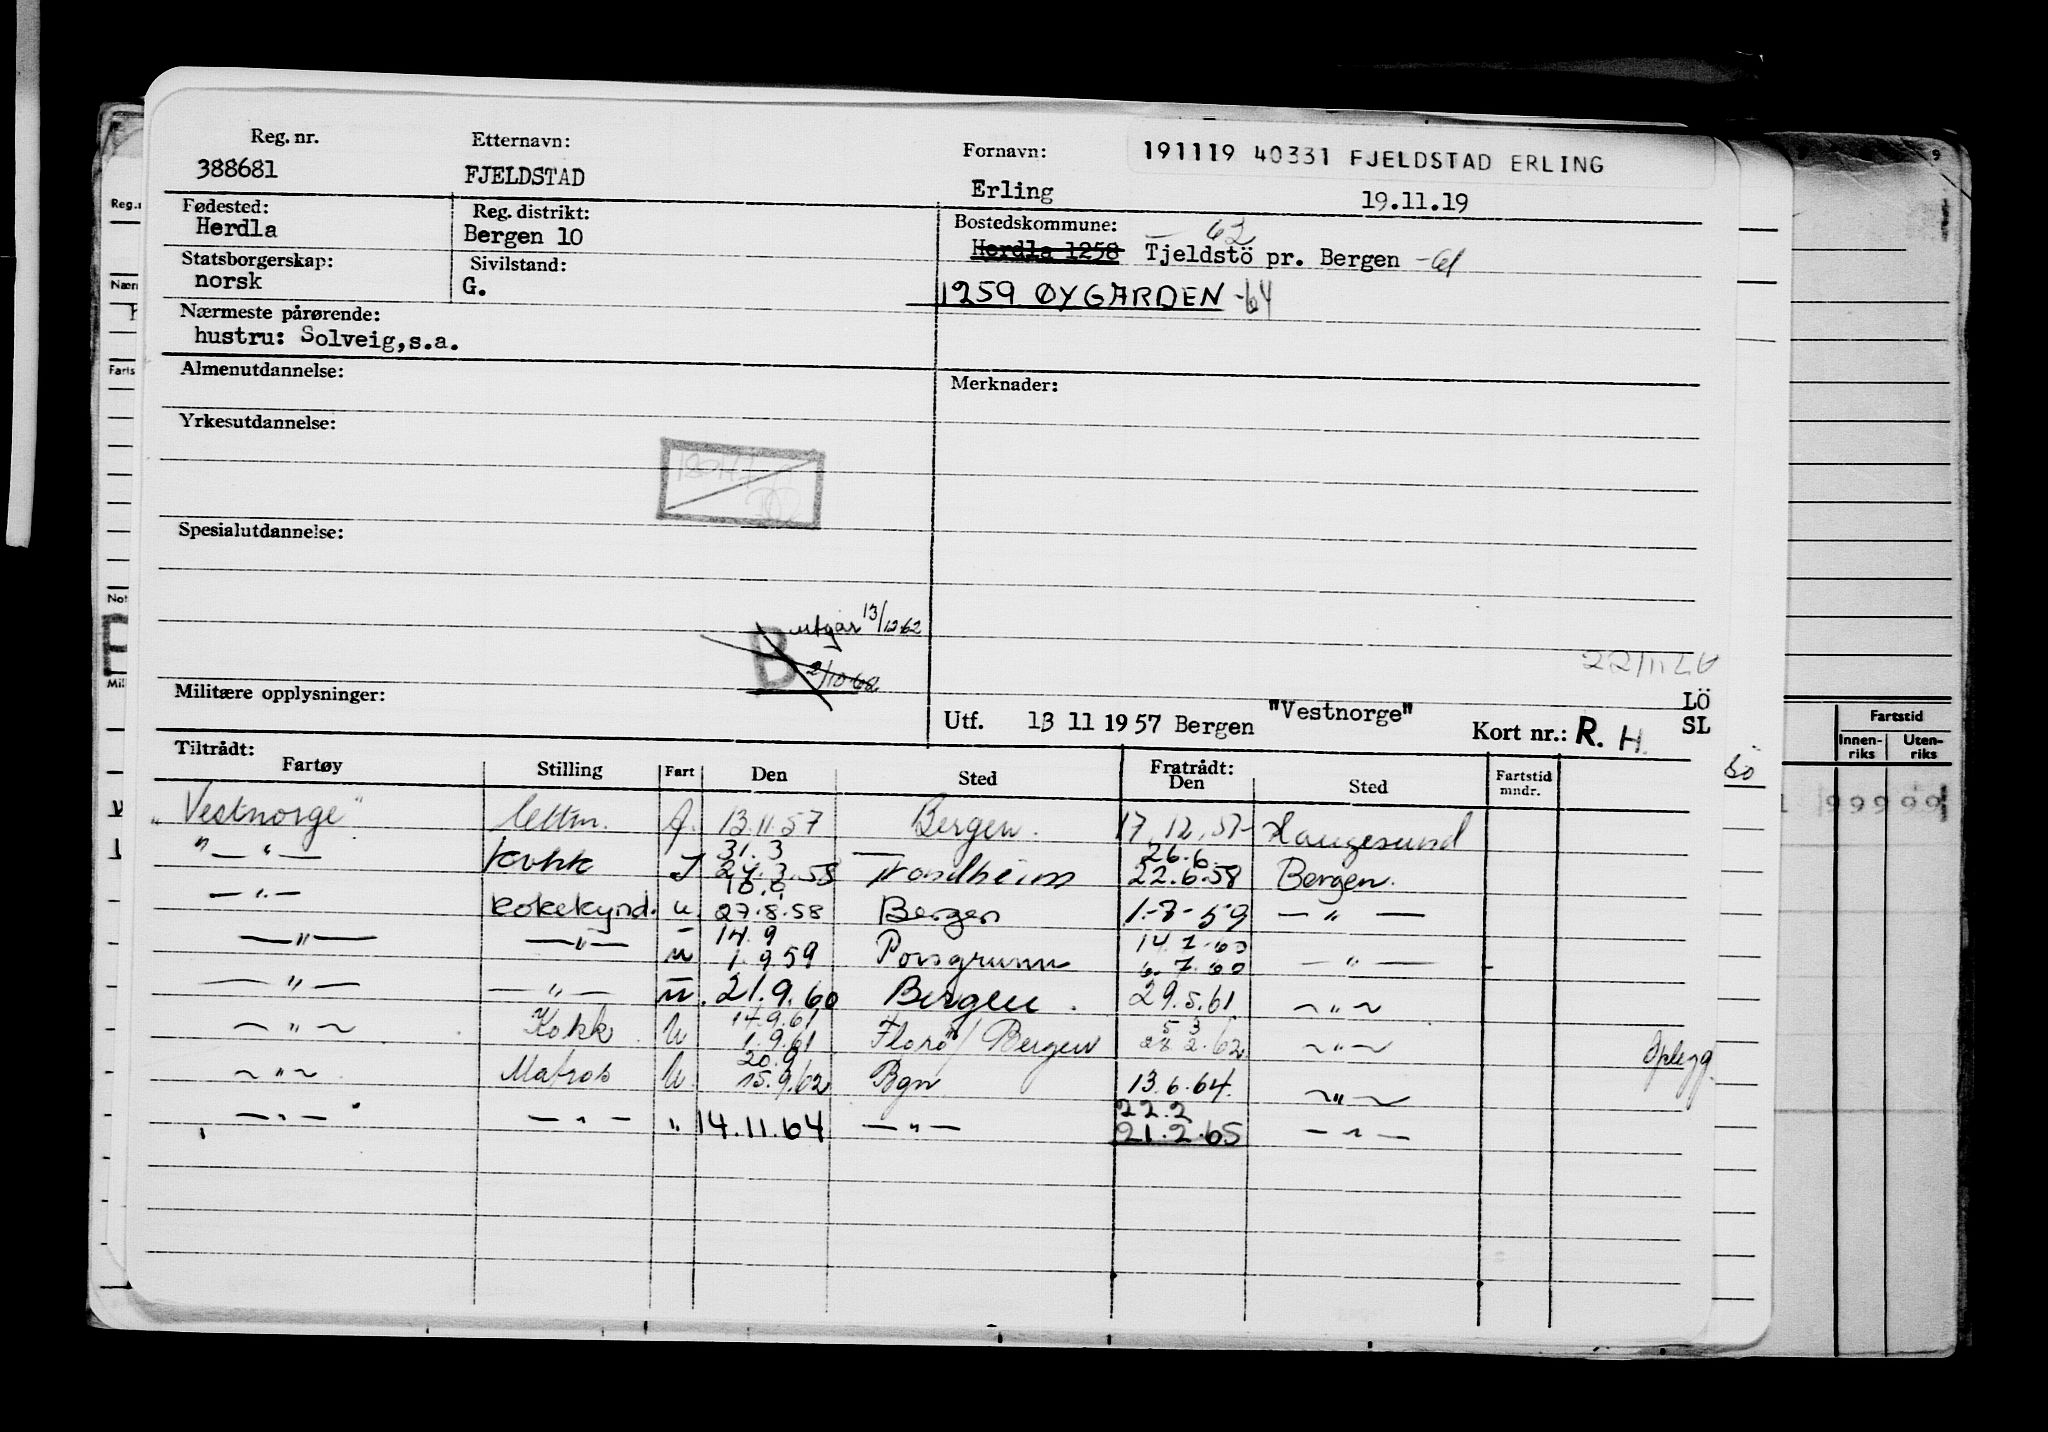 Reg. nr. Etternavn: Fornavn: 191119 40331 FJELDSTAD ERLING
388681 FJELDSTAD Erling 19.11.19
Fødested: Reg. distrikt: Bostedskommune: 62
Herdla Bergen 10 Herdla 1258 Tjeldstö pr. Bergen -61
Statsborgerskap: Sivilstand:
norsk G. 1259 ØYGARDEN -64
Nærmeste pårørende:
hustru: Solveig, s.a.
Almenutdannelse: Merknader:
Yrkesutdannelse:
Spesialutdannelse:
utgår 13/12 62
B 2/10-62
Militære opplysninger: LÖ
Utf. 13 11 1957 Bergen "Vestnorge" Kort nr.: R. H. SL
Tiltrådt: Fratrådt:
Fartøy Stilling Fart Den Sted Den Sted Fartstid mndr.
"Vestnorge" lettm. 13.11.57 Bergen. 17.12.57 Haugesund
31.3 26.6
" — " — Kokk 24.3.58 Trondheim 22.6.58 Bergen.
— " — Koksksynd. u. 27.8.58 Bergen 1.-7-59 — " —
14.9 14.7.60
— " — — " — u 1.9.59 Porsgrunn 6.7.60 — " —
— " — — " — u. 21.9.60 Bergen. 29.5.61 — " —
14.9.61 5 3
— " — Kokk U 1.9.61 Florö/Bergen 28.2.62 — " — Oplegg.
20.9
— " — Matros U 15.9.62 Bgn 13.6.64. — " —
22.2
— " — — " — " 14.11.64 — " — 21.2.65 — " —
Fartstid
Innenriks Utenriks